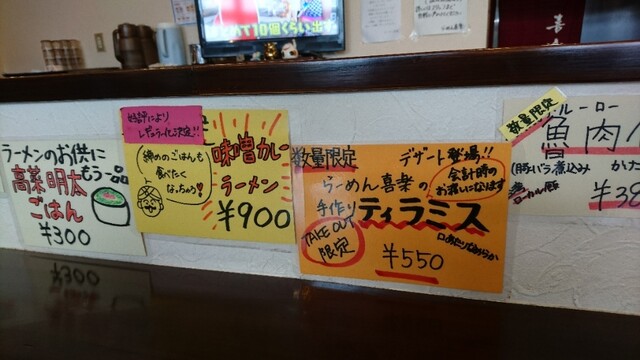 ラーメンのお供に
高菜明太
ごはん
¥300
もう一品
好評により
レギュラー化決定!!
締めのごはんも
食べたく
なっちゃう
味噌カレー
ラーメン
¥900
数量限定
デザート登場!!
会計時の
お渡しになります
らーめん喜楽の
手作り
ティラミス
TAKE OUT
限定
口あたりなめらか
¥550
数量限定
ルーロー
魯肉
(豚バラ煮込み
¥3